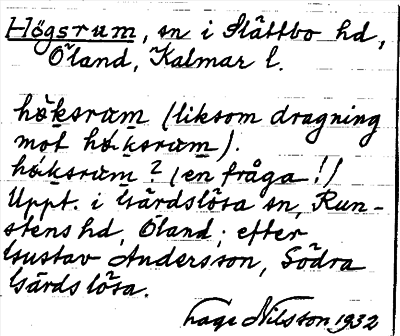 Högsrum, sn i Slättbo hd,
Öland, Kalmar l.
höksrum (liksom dragning
mot håksrum).
håksrum? (en fråga!)
Uppt. i Gärdslösa sn, Run-
stens hd, Öland; efter
Gustav Andersson, Södra
Gärdslösa.
Lage Nilsson 1932